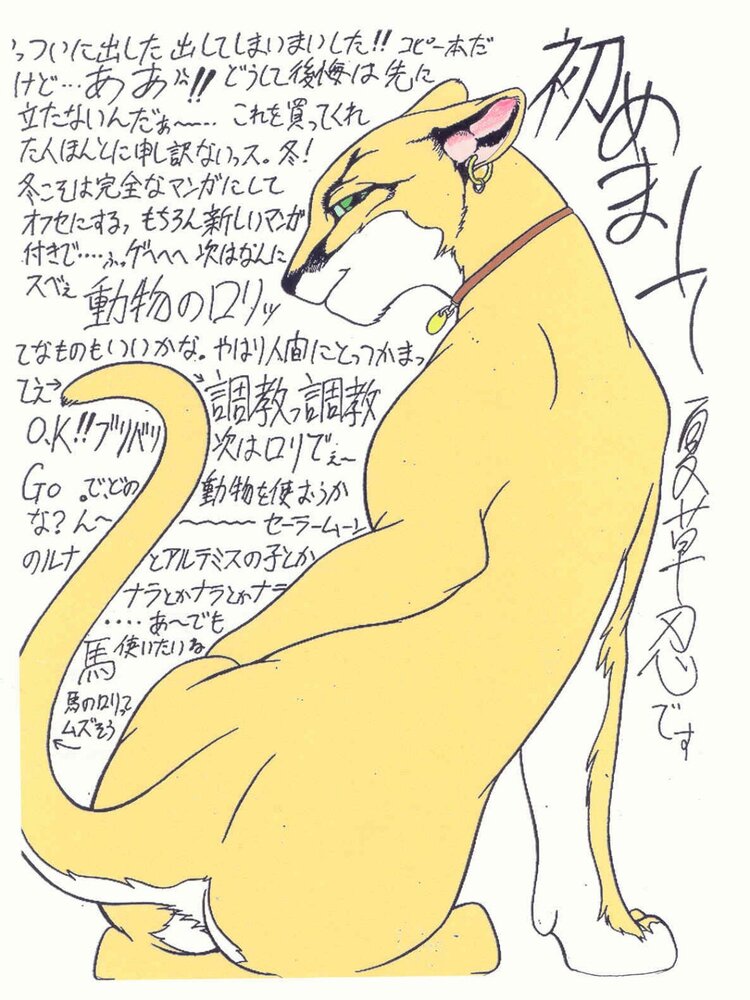 初めまして
夏草忍です
ついに出した 出してしまいまいした!! コピー本だ
けど…ああ゛!! どうして後悔は先に
立たないんだぁ〜…… これを買ってくれ
た人ほんとに申し訳ないっス。冬!
冬こそは完全なマンガにして
オフセにする。もちろん新しいマンガ
付きで……ふっゲヘヘヘ 次はなんに
スベぇ
動物のロリッ
てなものもいいかな。やはり人間にとっつかまっ
てえ→
調教っ調教
O.K!!ブリバリ
次はロリでぇ〜
Go 。で、どの
動物を使おうか
な?ん〜〜〜〜〜〜 セーラームーン
のルナとアルテミスの子とか
ナラとかナラとかナラ
‥‥あ〜でも
馬 使いたいね
馬のロリって
ムズそう